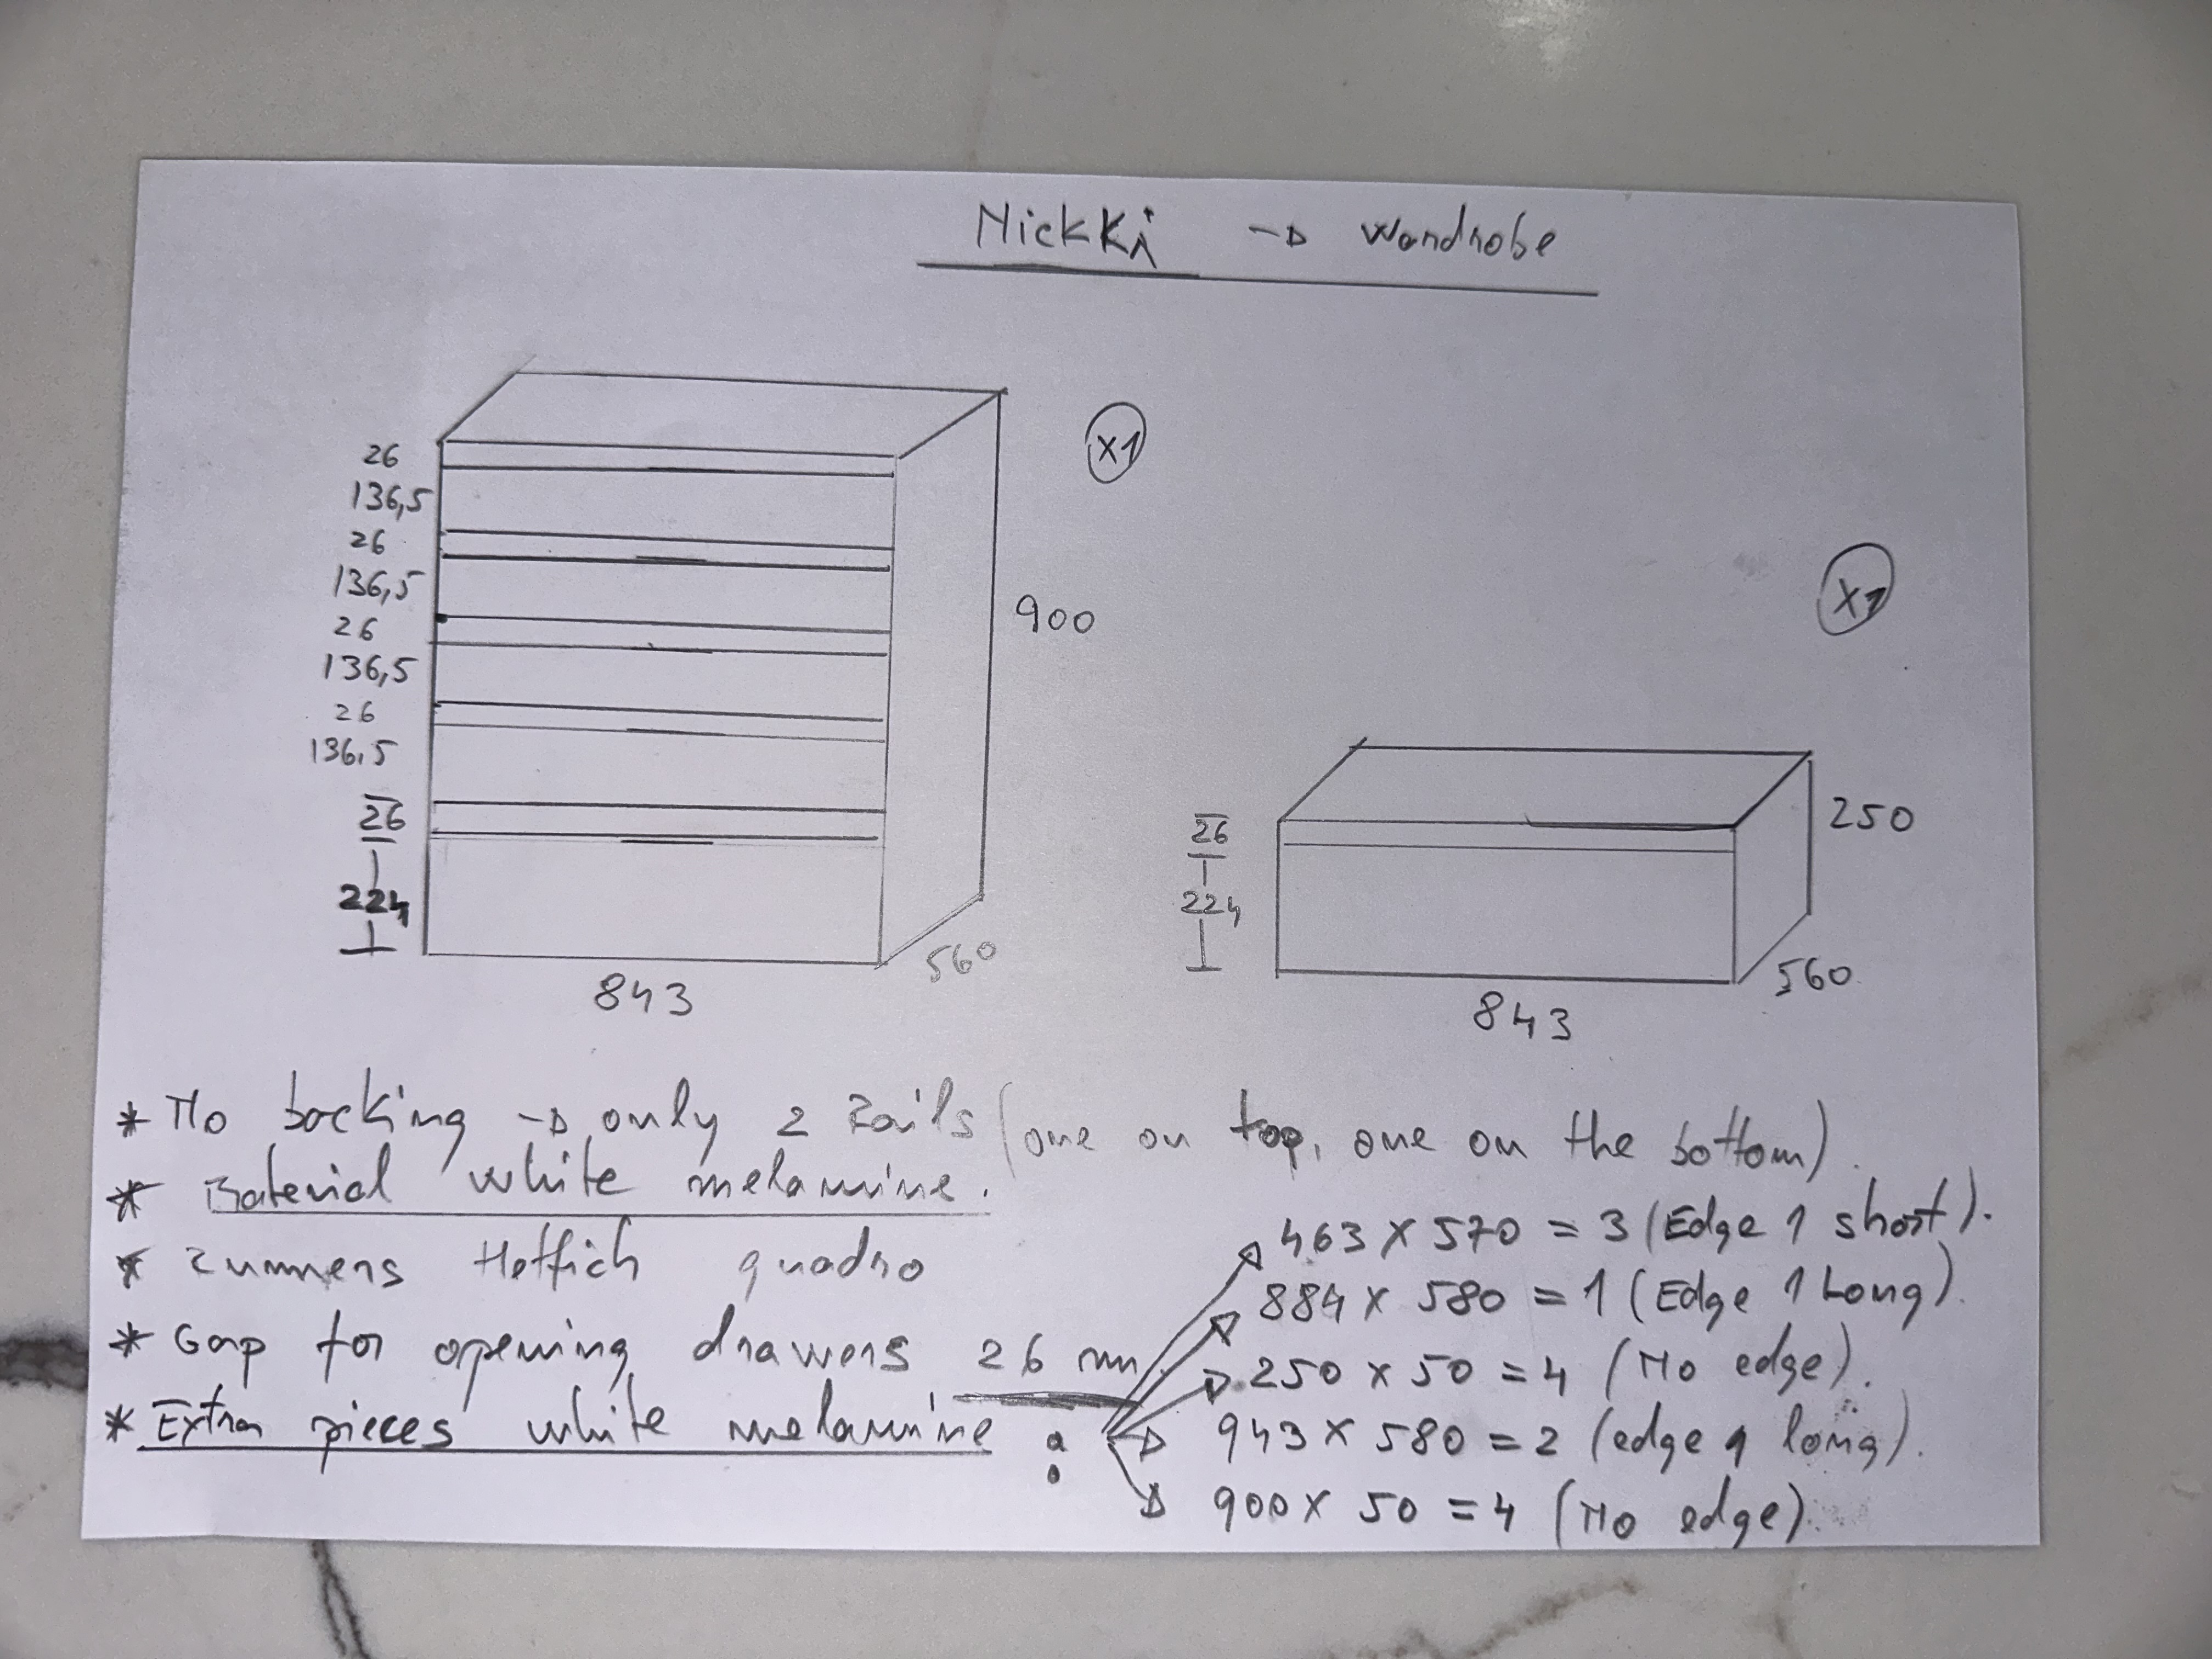 Nickki → Wardrobe
26
136,5
26
136,5
26
136,5
26
136,5
26
224
843
560
900
x1
x1
26
224
843
560
250
* No backing → only 2 Rails (one on top, one on the bottom).
* Material white melamine.
* Runners Hettich quadro
* Gap for opening drawers 26 mm
* Extra pieces white melamine :
→ 463 x 570 = 3 (Edge 1 short).
→ 884 x 580 = 1 (Edge 1 Long).
→ 250 x 50 = 4 (No edge).
→ 943 x 580 = 2 (edge 1 long).
→ 900 x 50 = 4 (No edge).